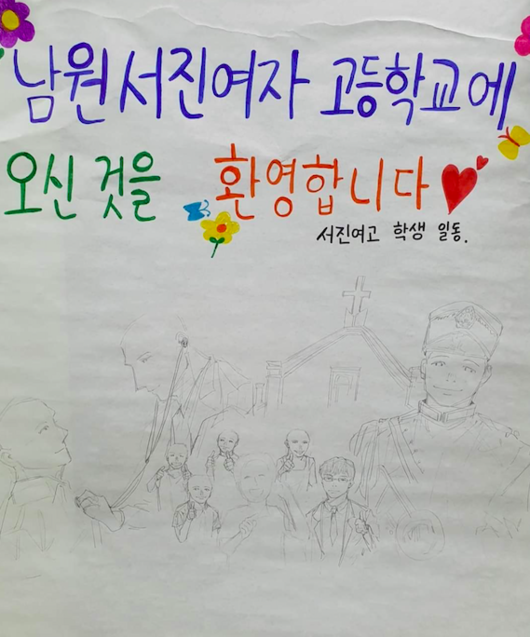 남원서진여자 고등학교에
오신 것을 환영합니다
서진여고 학생 일동.